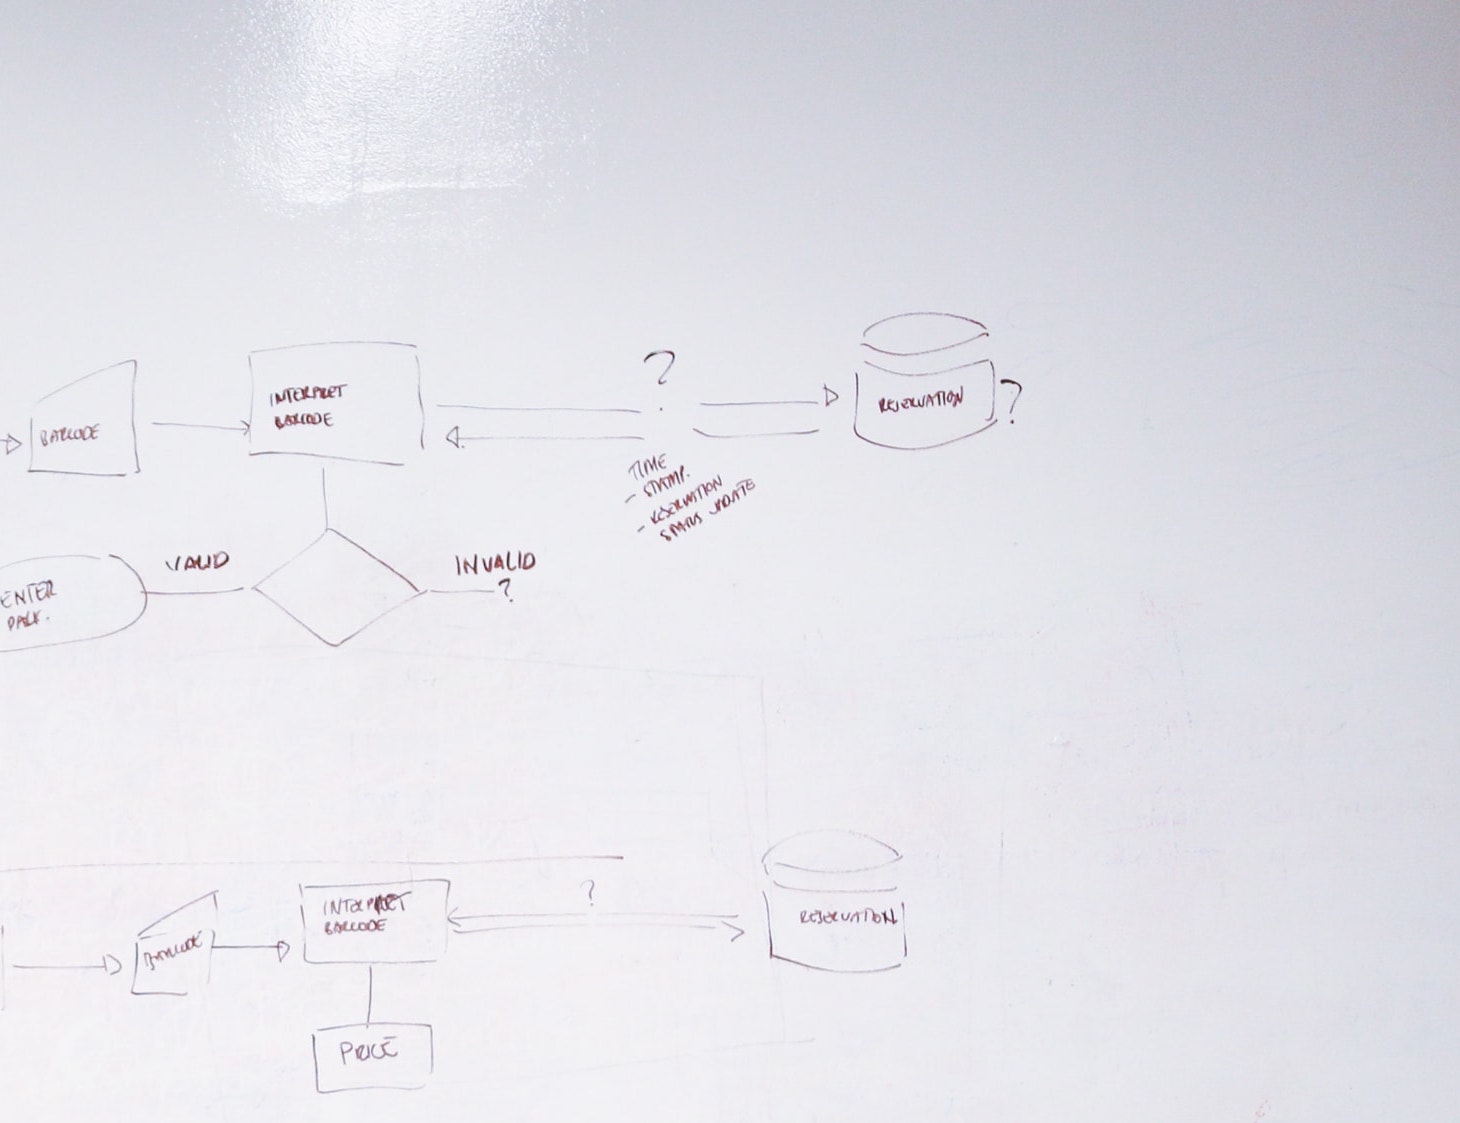 ?
BARCODE
INTERPRET
BARCODE
RESERVATION
?
TIME
- STAMP.
- RESERVATION
STATUS UPDATE
VALID
INVALID
?
ENTER
PARK.
?
BARCODE
INTERPRET
BARCODE
RESERVATION
PRICE